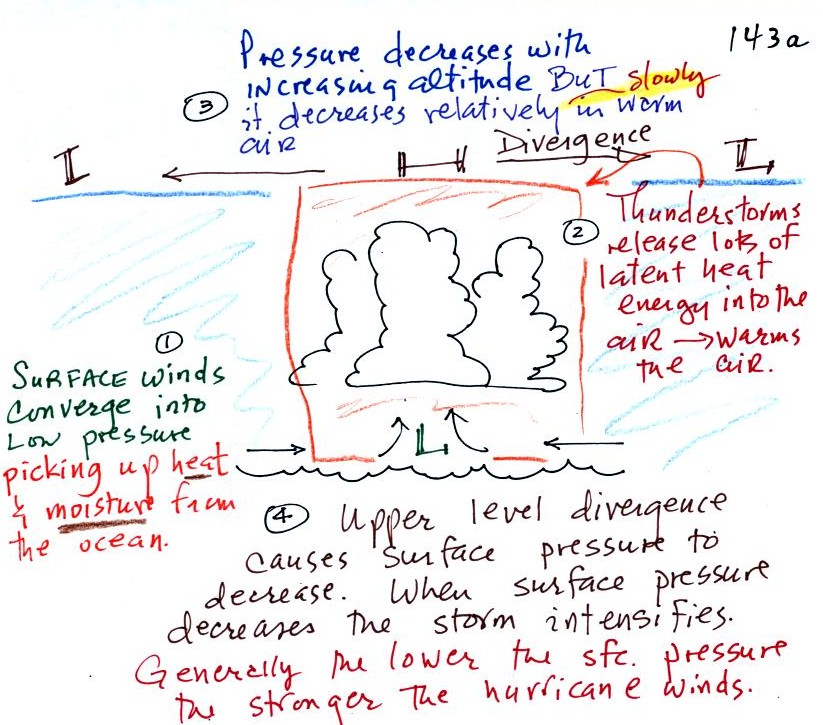 143a
Pressure decreases with
increasing altitude BUT slowly
③ it decreases relatively in warm
air
Divergence
L
H
L
②
Thunderstorms
release lots of
latent heat
energy into the
air → warms
the air.
①
SURFACE winds
converge into
Low pressure
picking up heat
& moisture from
the ocean.
L
④ Upper level divergence
causes surface pressure to
decrease. When surface pressure
decreases the storm intensifies.
Generally the lower the sfc. pressure
the stronger the hurricane winds.